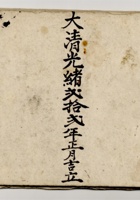 大清光緒弐拾弐年正月吉立